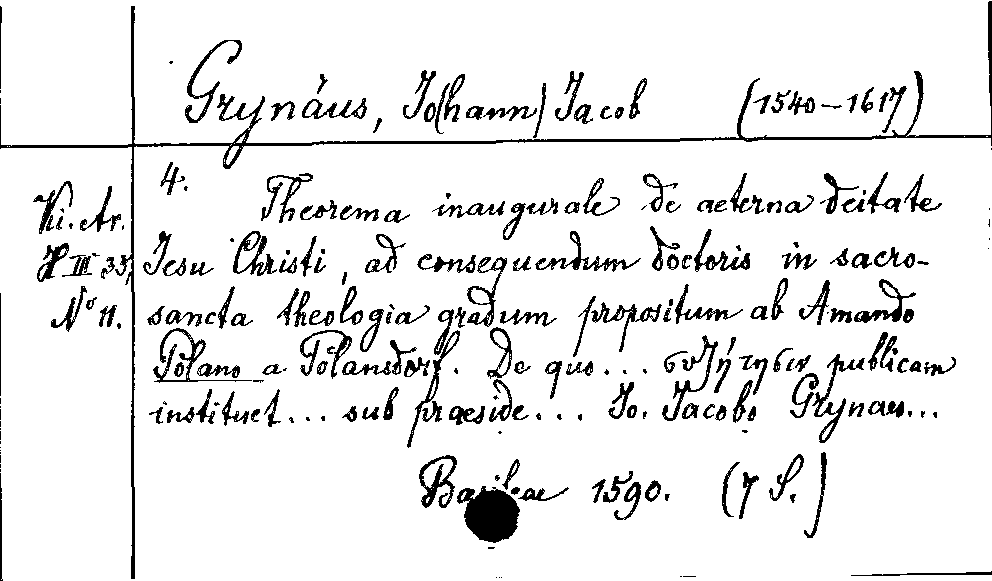 Grynäus, Jo(hann) Jacob (1540-1617)
4.
Theorema inaugurale de aeterna deitate
Jesu Christi, ad consequendum doctoris in sacro-
sancta theologia gradum propositum ab Amando
Polano a Polansdorf. De quo... συζήτησιν publicam
instituet... sub praeside... Jo. Jacobo Grynaeo...
Basileae 1590. (7 S.)
Ki. Ar.
H III 35,
No 11.